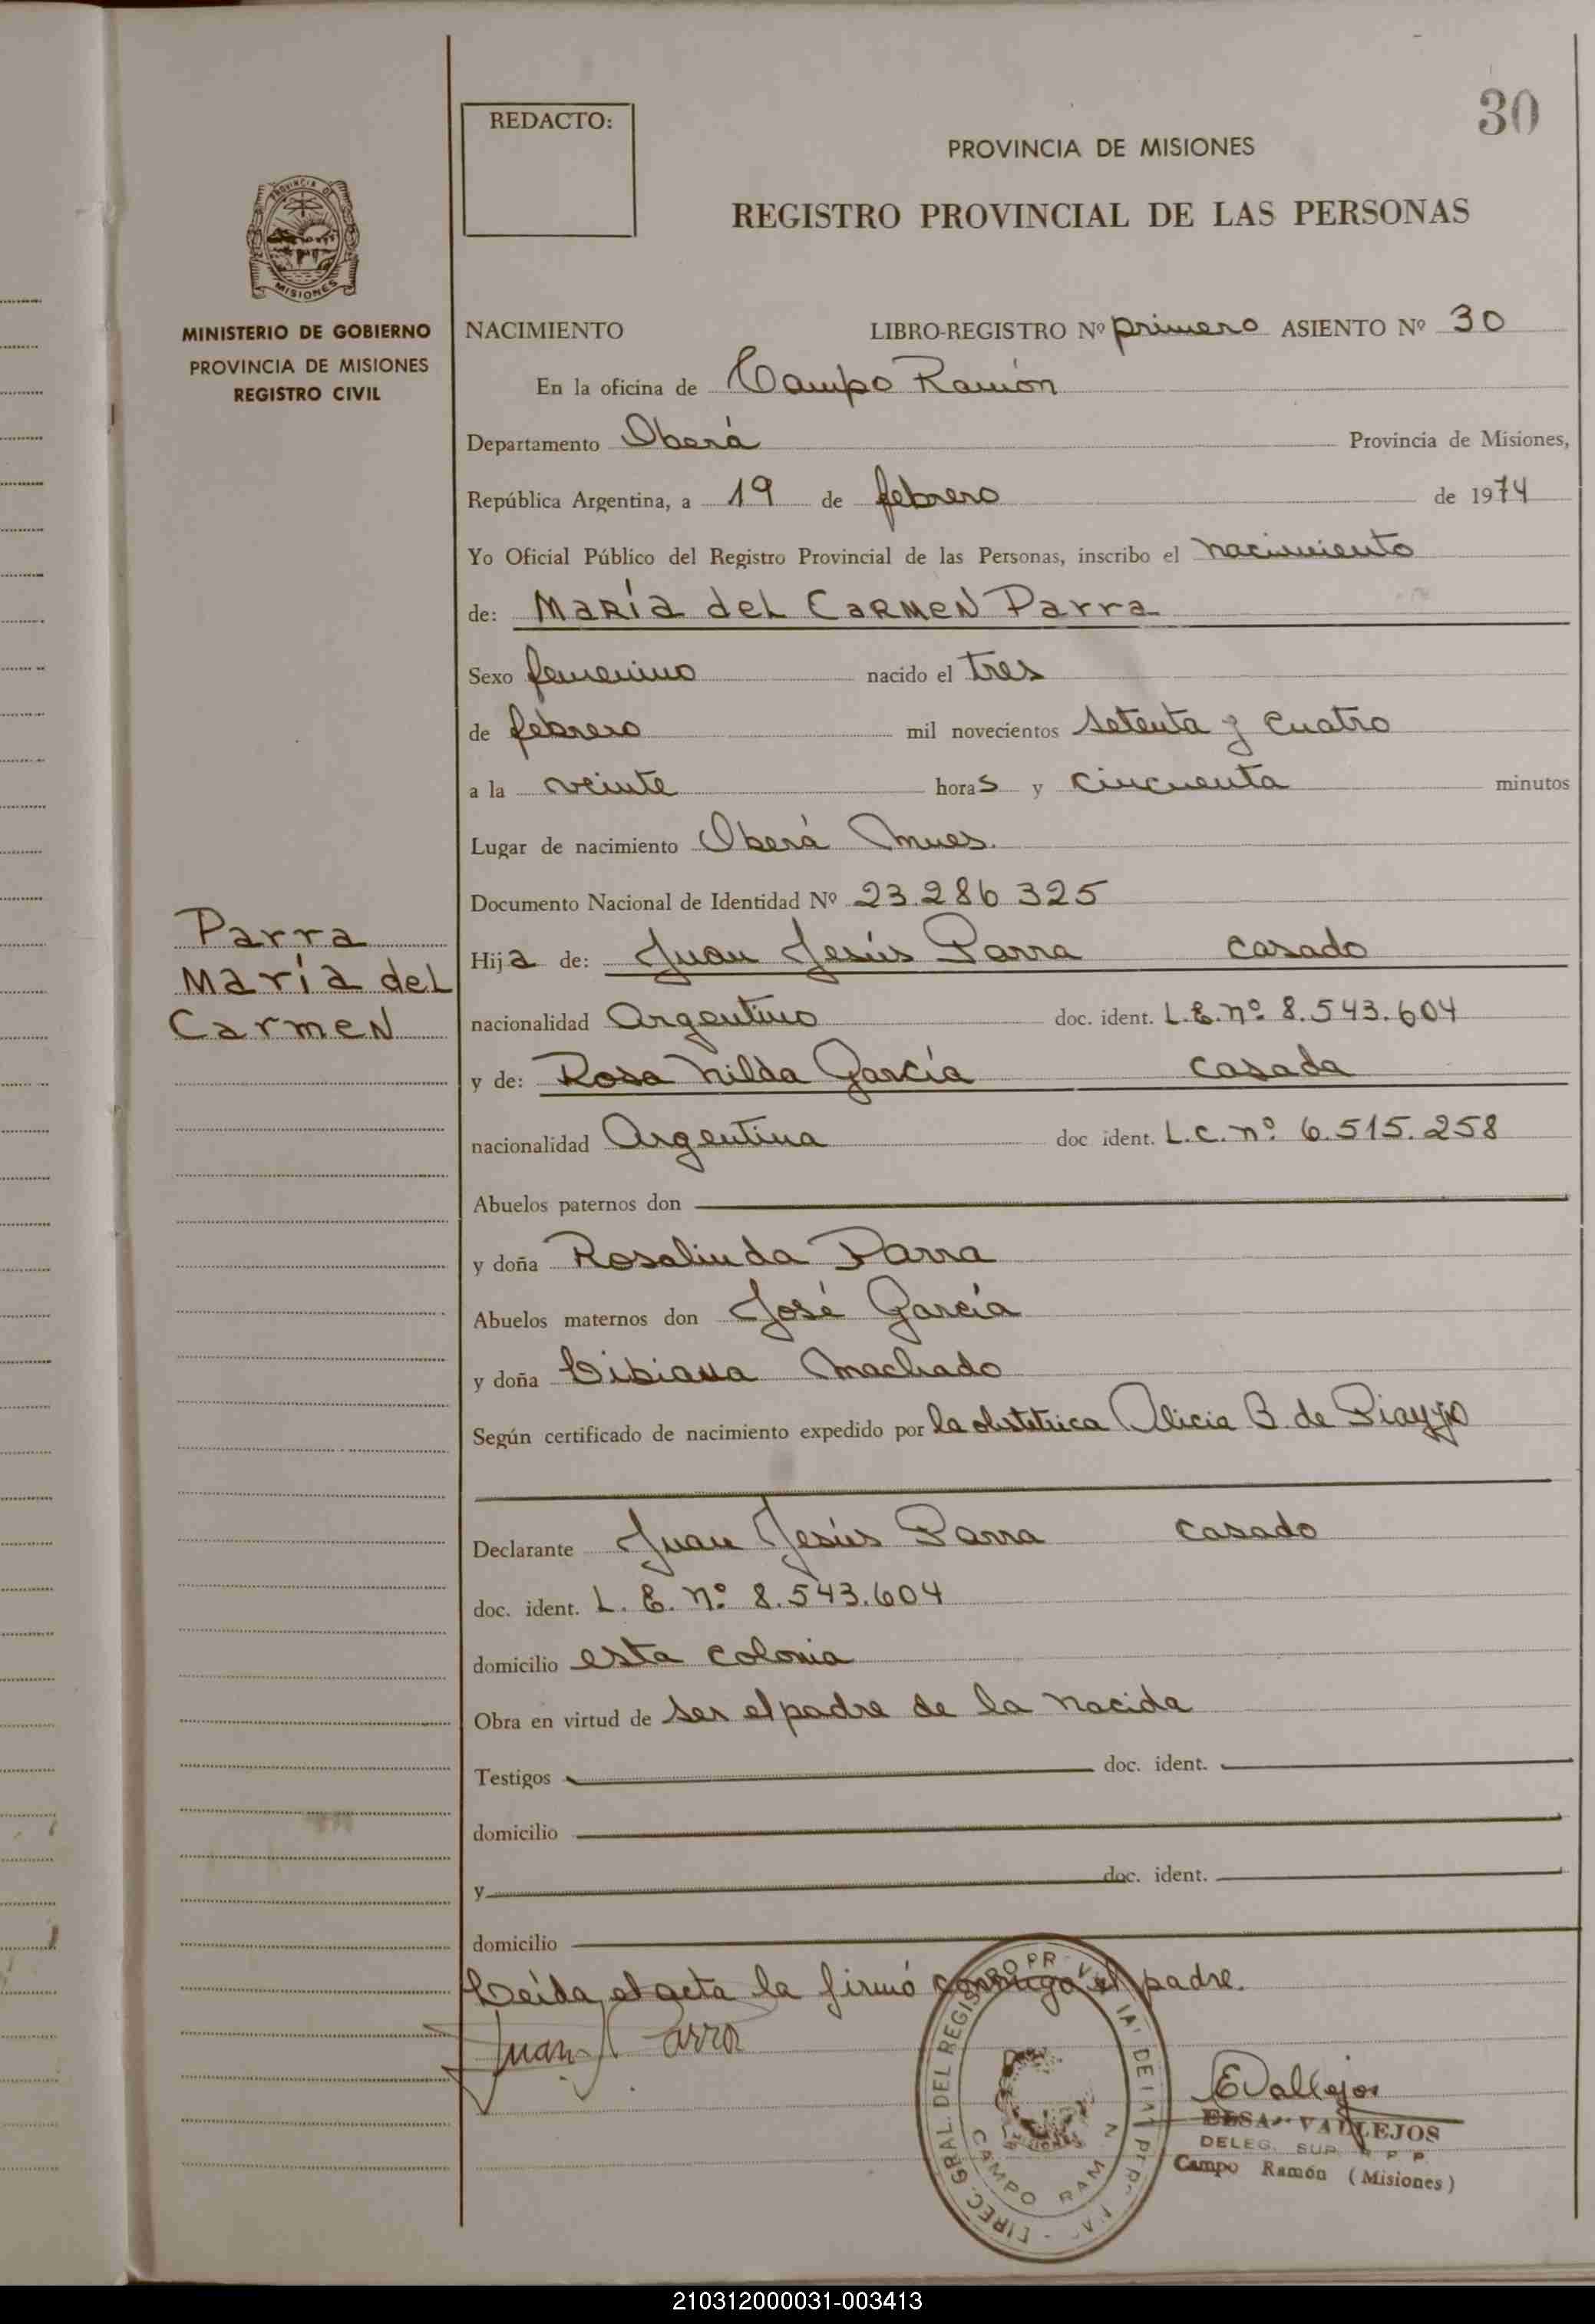 30
REDACTO:
PROVINCIA DE MISIONES
REGISTRO PROVINCIAL DE LAS PERSONAS
PROVINCIA DE
MISIONES
MINISTERIO DE GOBIERNO
PROVINCIA DE MISIONES
REGISTRO CIVIL
NACIMIENTO LIBRO-REGISTRO Nº primero ASIENTO Nº 30
En la oficina de Campo Ramón
Departamento Oberá Provincia de Misiones,
República Argentina, a 19 de febrero de 1974
Yo Oficial Público del Registro Provincial de las Personas, inscribo el nacimiento
de: María del Carmen Parra
Sexo femenino nacido el tres
de febrero mil novecientos setenta y cuatro
a la veinte horas y cincuenta minutos
Lugar de nacimiento Oberá Mnes.
Documento Nacional de Identidad Nº 23.286325
Parra
María del
Carmen
Hija de: Juan Jesús Parra casado
nacionalidad Argentino doc. ident. L.E. nº 8.543.604
y de: Rosa Nilda García casada
nacionalidad Argentina doc ident. L.C. nº 6.515.258
Abuelos paternos don
y doña Rosalinda Parra
Abuelos maternos don José García
y doña Bibiana Machado
Según certificado de nacimiento expedido por la obstetrica Alicia B. de
Declarante Juan Jesús Parra casado
doc. ident. L. E. nº 8.543.604
domicilio esta colonia
Obra en virtud de ser el padre de la nacida
Testigos doc. ident.
domicilio
y doc. ident.
domicilio
Leída el acta la firmó conmigo el padre.
Juan J Parra
EVallejos
ELSA VALLEJOS
DELEG. SUP. R P P
Campo Ramón (Misiones)
DIREC. GRAL. DEL REGISTRO
CAMPO RAMON
210312000031-003413